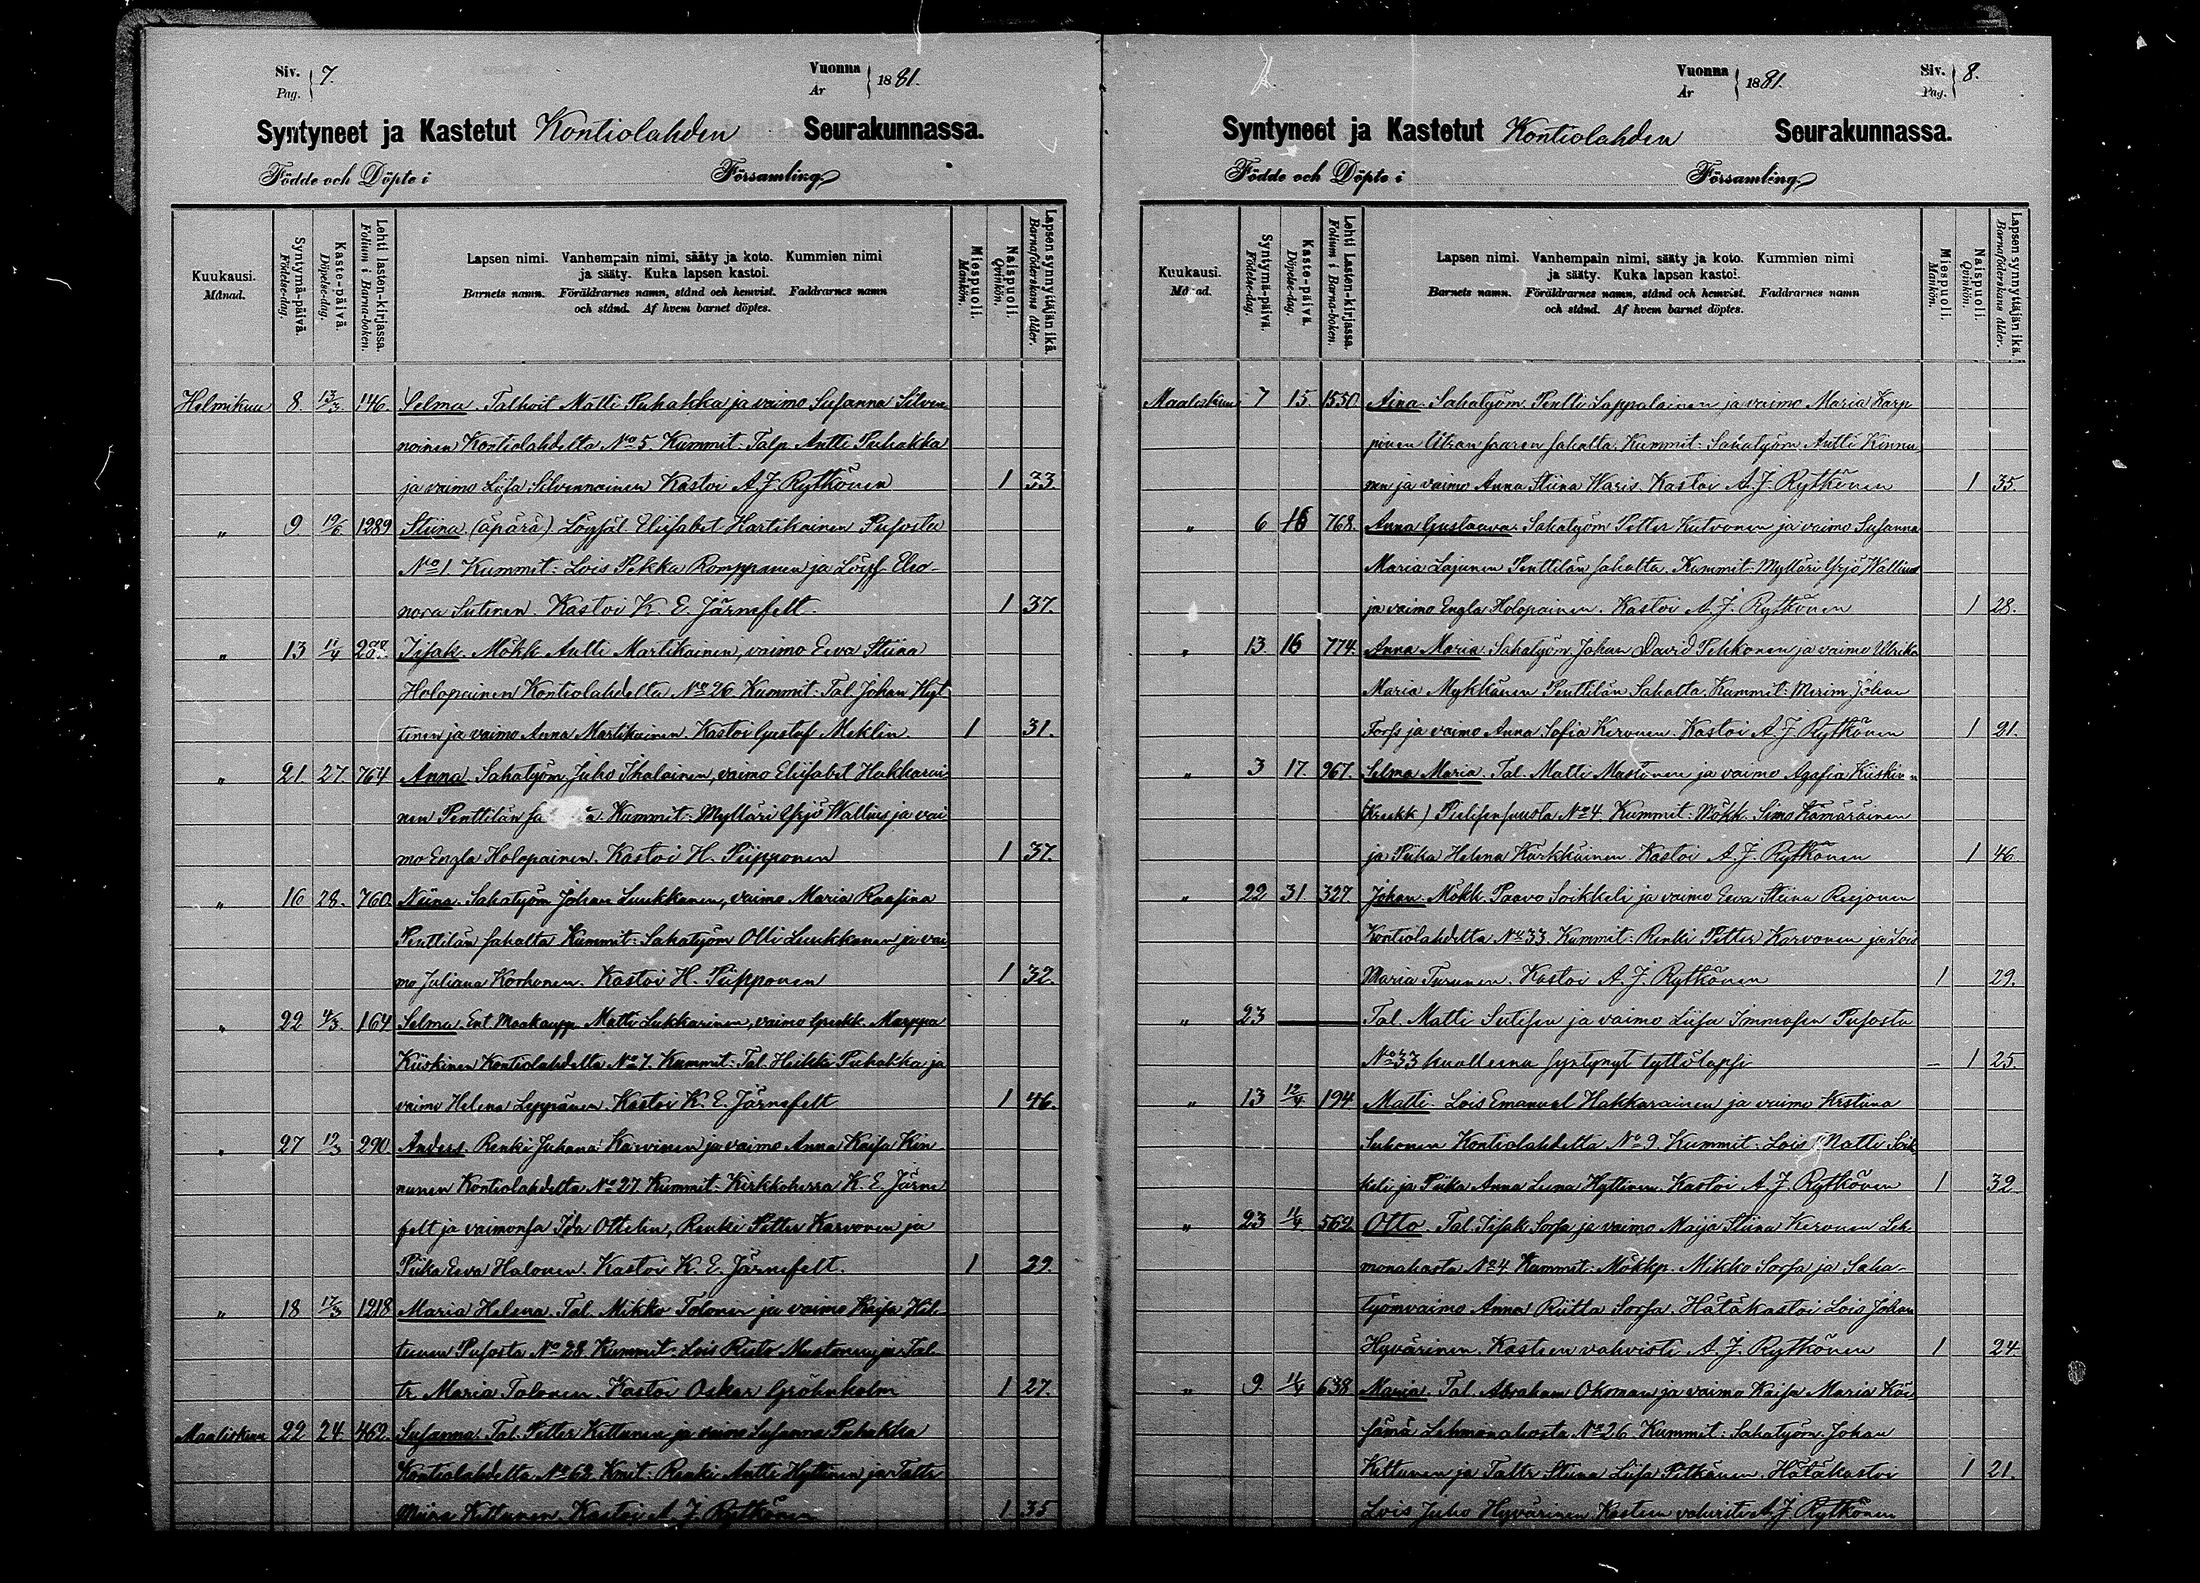 Siv. 7. Vuonna 1881.
Pag. År
Syntyneet ja Kastetut Kontiolahden Seurakunnassa.
Födde och Döpte i Församling
Kuukausi. Månad. Syntymä-päivä. Födelse-dag. Kaste-päivä. Döpelse-dag. Lehti lasten-kirjassa. Folium i Barna-boken.
Lapsen nimi. Vanhempain nimi, sääty ja koto. Kummien nimi
ja sääty. Kuka lapsen kastoi.
Barnets namn. Föräldrarnes namn, stånd och hemvist. Faddrarnes namn
och stånd. Af hvem barnet döptes.
Miespuoli. Mankön. Naispuoli. Qvinkön. Lapsensynnyttäjän ikä. Barnaföderskans ålder.
Helmikuu 8. 13/3 146. Selma. Talhoit Matti Puhakka ja vaimo Susanna Silven
noinen Kontiolahdelta No 5. Kummit: Talp. Antti Puhakka
ja vaimo Liisa Silvennoinen Kastoi A J Rytkönen 1 33.
" 9. 19/6 1289 Stiina. (äpärä) Elisabet Hartikainen Pusosta
No 1. Kummit: Lois Pekka Romppanen ja Eleo-
nora Sutinen. Kastoi K. E. Järnefelt. 1 37.
" 13 11/4 288. Iisak. Mökk Antti Martikainen, vaimo Eeva Stiina
Holopainen Kontiolahdelta No 26 Kummit: Tal. Johan Hyt
tinen ja vaimo Anna Martikainen Kastoi Gustaf Meklin 1 31.
" 21 27. 764 Anna Sahatyöm Juho Ihalainen, vaimo Eliisabet Hakkarai
nen Penttilän Kummit: Mylläri Yrjö Wallius ja vai
mo Engla Holopainen. Kastoi H. Piipponen 1 37.
" 16 28. 760. Niina. Sahatyöm Johan Luukkanen, vaimo Maria Raasina
Penttilän sahalta Kummit: Sahatyöm Olli Luukkanen ja vai
mo Juliana Korhonen. Kastoi H. Piipponen 1 32.
" 22 4/3 164 Selma. Ent. Maakaupp. Matti Lukkarinen, vaimo Grekk. Marppa
Kiiskinen Kontiolahdelta No 7. Kummit: Tal. Heikki Puhakka ja
vaimo Helena Leppänen. Kastoi K. E. Järnefelt 1 46.
" 27 12/3 290. Anders. Renki Juhana Karvinen ja vaimo Anna Kaisa Kin
nunen Kontiolahdelta No 27. Kummit: Kirkkoherra K. E. Järne
felt ja vaimonsa Ida Ottelin, Renki Petter Karvonen ja
Piika Eeva Halonen. Kastoi K. E. Järnefelt. 1 29.
" 18 17/3 1218 Maria Helena. Tal. Mikko Tolonen ja vaimo Kaisa Hil
tunen Pusosta No 28 Kummit: Lois Risto Mustonen ja Tal
tr. Maria Tolonen. Kastoi Oskar Gröhnholm 1 27.
Maaliskuu 22 24. 462. Susanna. Tal. Petter Kettunen ja vaimo Susanna Puhakka
Kontiolahdelta No 62. Kmit: Renki Antti Hyttinen ja Taltr
Miina Kettunen. Kastoi A. J. Rytkönen 1 35
Vuonna 1881. Siv. 8.
År Pag.
Syntyneet ja Kastetut Kontiolahden Seurakunnassa.
Födde och Döpte i Församling
Kuukausi. Månad. Syntymä-päivä. Födelse-dag. Kaste-päivä. Döpelse-dag. Lehti Lasten-kirjassa. Folium i Barna-boken.
Lapsen nimi. Vanhempain nimi, sääty ja koto. Kummien nimi
ja sääty. Kuka lapsen kastoi.
Barnets namn. Föräldrarnes namn, stånd och hemvist. Faddrarnes namn
och stånd. Af hvem barnet döptes.
Miespuoli. Mankön. Naispuoli. Qvinkön. Lapsensynnyttäjän ikä. Barnaföderskans ålder.
Maaliskuu 7 15. 1550. Aina. Sahatyöm Pentti Lappalainen ja vaimo Maria Karp
pinen Utran saaren sahalta. Kummit: Sahatyöm. Antti Kinnu
nen ja vaimo Anna Stiina Waris. Kastoi A. J. Rytkönen 1 35.
" 6 16 768. Anna Gustaava. Sahatyöm Petter Kutvonen ja vaimo Susanna
Maria Lajunen Penttilän sahalta. Kummit: Mylläri Yrjö Wallius
ja vaimo Engla Holopainen. Kastoi A. J. Rytkönen 1 28.
" 13. 16 774. Anna Maria. Sahatyöm Johan David Pekkonen ja vaimo Ulrika
Maria Mykkänen Penttilän Sahalta. Kummit: Merim. Johan
Forss ja vaimo Anna Sofia Keronen. Kastoi A. J. Rytkönen 1 21.
" 3 17. 967. Selma Maria. Tal. Matti Mustonen ja vaimo Agafia Kiiskinen
(Kreekk) Pielisensuusta No 4. Kummit: Mökk. Simo Kämäräinen
ja Piika Helena Kärkkäinen. Kastoi A. J. Rytkönen 1 46.
" 22 31. 327. Johan. Mökk. Paavo Soikkeli ja vaimo Eeva Stiina Reijonen
Kontiolahdelta No 33. Kummit: Renki Petter Karvonen ja Lois
Maria Turunen. Kastoi A. J. Rytkönen 1 29.
" 23 — Tal. Matti Sutisen ja vaimo Liisa Immosen Pusosta
No 33 kuolleena syntynyt tyttölapsi – 1 25.
" 13 12/4 194 Matti. Lois Emanuel Hakkarainen ja vaimo Kristiina
Suhonen Kontiolahdelta No 9. Kummit: Lois Matti Soik
keli ja Piika Anna Leena Hyttinen. Kastoi A. J. Rytkönen 1 32.
" 23 11/4 562 Otto. Tal. Iisak Sorsa ja vaimo Maija Stiina Keronen Leh
monahosta No 4. Kummit: Mökkp. Mikko Sorsa ja Saha-
työmvaimo Anna Riitta Sorsa. Hätäkastoi Lois Johan
Hyvärinen. Kasteen vahvisti A. J. Rytkönen 1 24
" 9 11/4 638 Maria. Tal. Abraham Okoman ja vaimo Kaisa Maria Kär
sämä Lehmonahosta No 26 Kummit: Sahatyöm. Johan
Kettunen ja Taltr Stiina Liisa Pitkänen. Hätäkastoi 1 21.
Lois Juho Hyvärinen. Kasteen vahvisti A. J. Rytkönen